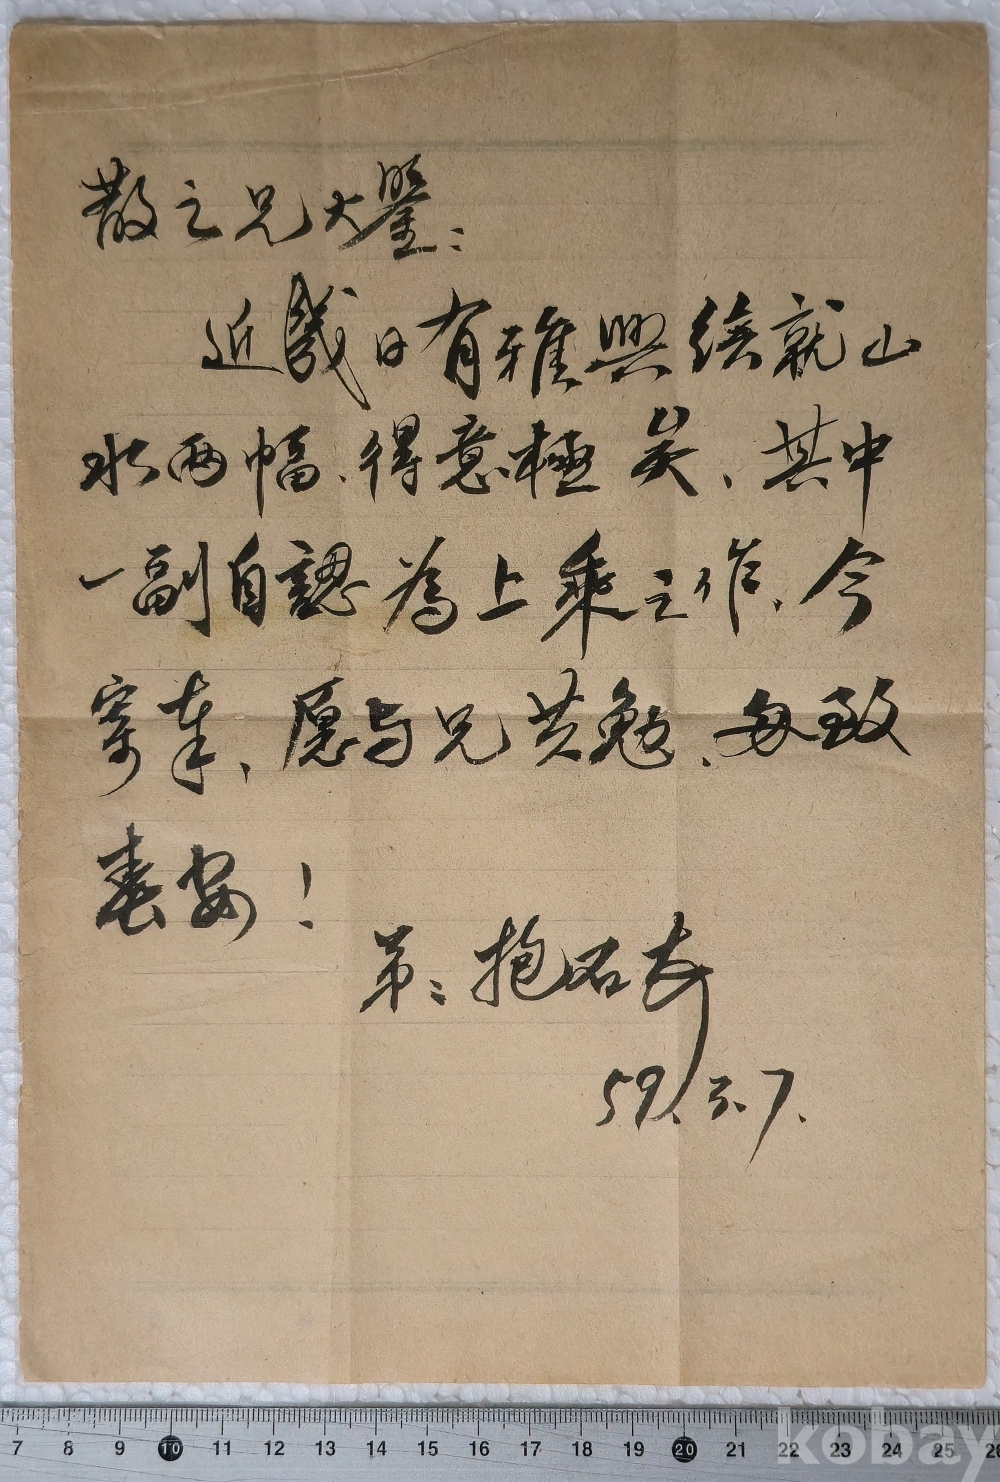 散之兄大鑒:
近幾日有雅興绘就山
水两幅、得意極矣、其中
一副自認為上乘之作、今
寄奉、愿与兄共勉、每致
春安!
弟:抱石
59.3.7.
7 8 9 10 11 12 13 14 15 16 17 18 19 20 21 22 23 24 25 26
kobay